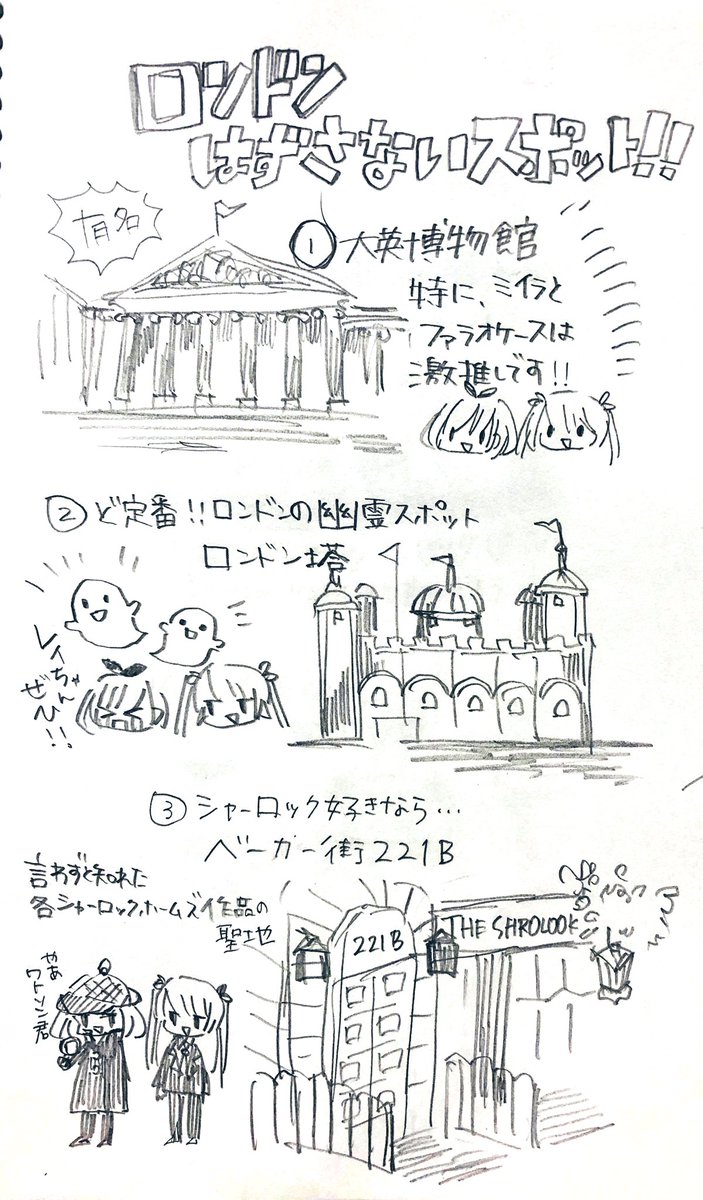 ロンドン
はずさないスポット!!
有名
① 大英博物館
特に、ミイラと
ファラオケースは
激推しです!!
② ど定番!!ロンドンの幽霊スポット
ロンドン塔
レイちゃん
ぜひ!!
③ シャーロック好きなら…
ベーカー街221B
言わずと知れた
各シャーロックホームズ作品の
聖地
やあ
ワトソン君
221B
THE SHROLOOK